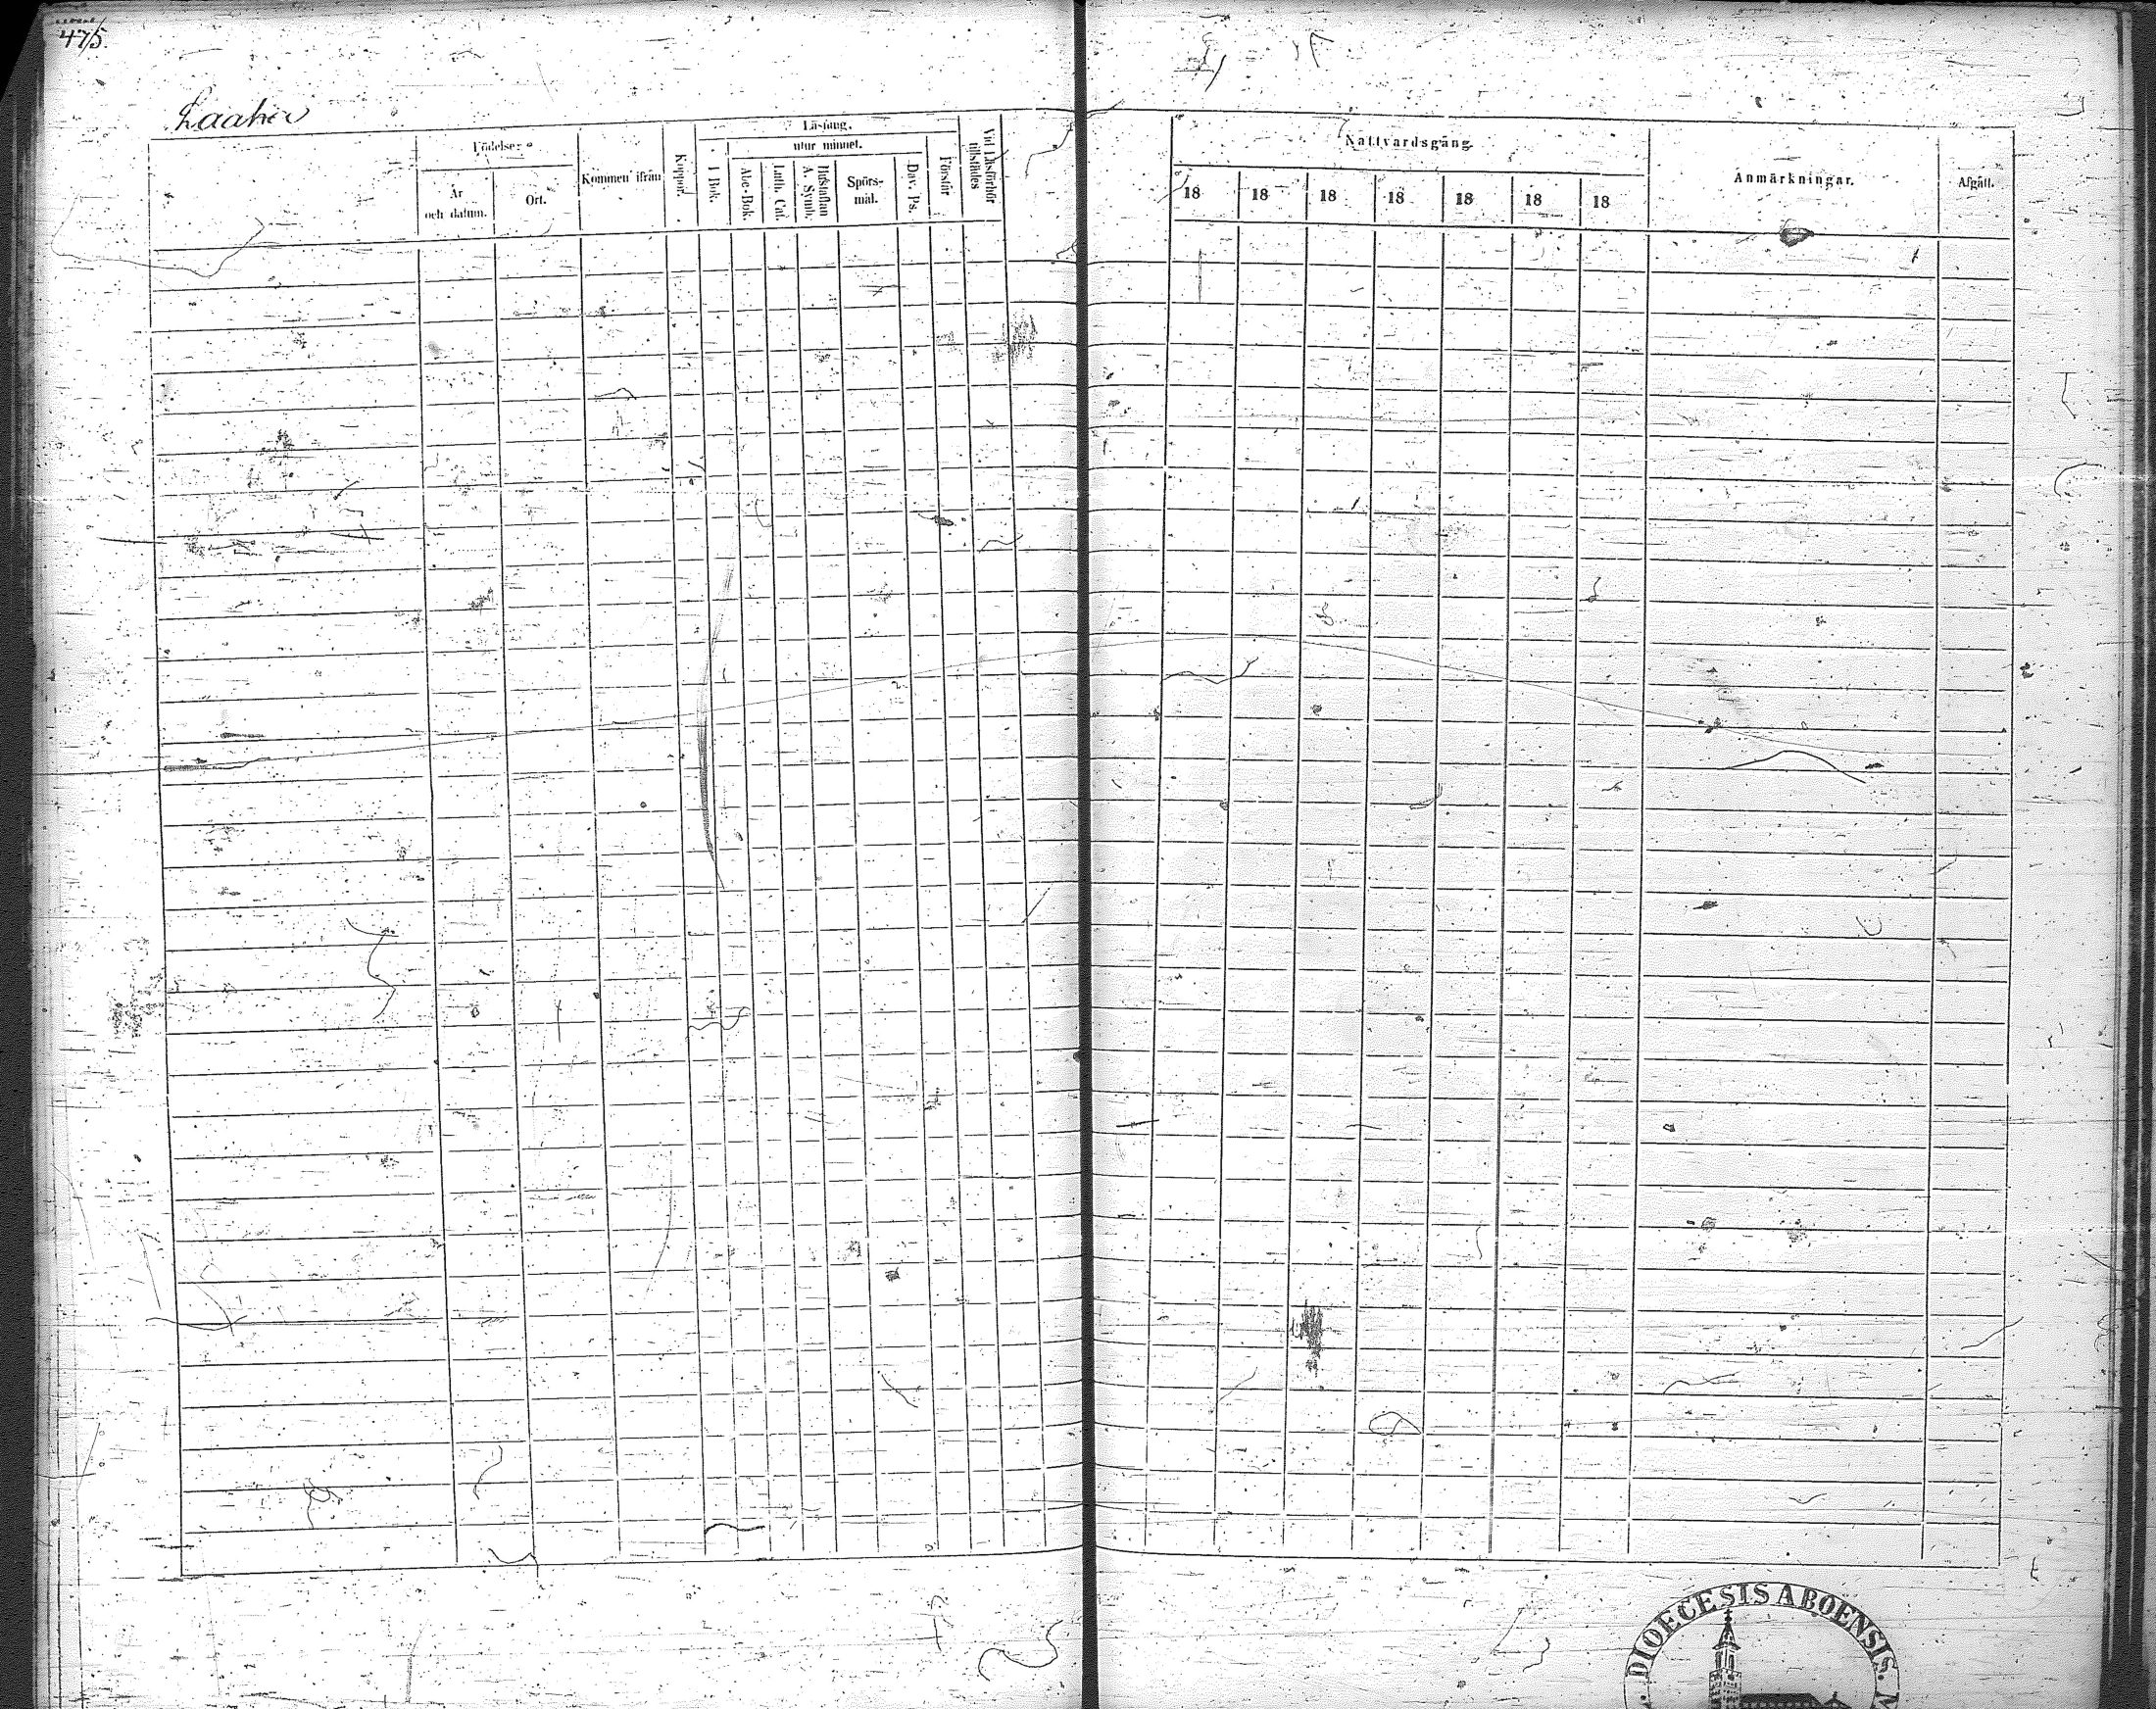 475.
Laaker
Födelse-
År
och datum.
Ort.
Kommen ifrån
Koppor.
Läsning.
I Bok.
utur minnet.
Abc-Bok.
Luth. Cat.
Hustaflan
A. Symb.
Spörs-
mål.
Dav. Ps.
Förstår
Vid Läsförhör
tillstädes
Nattvardsgång.
18 18 18 18 18 18 18
Anmärkningar.
Afgått.
DIOECESIS ABOENSIS.